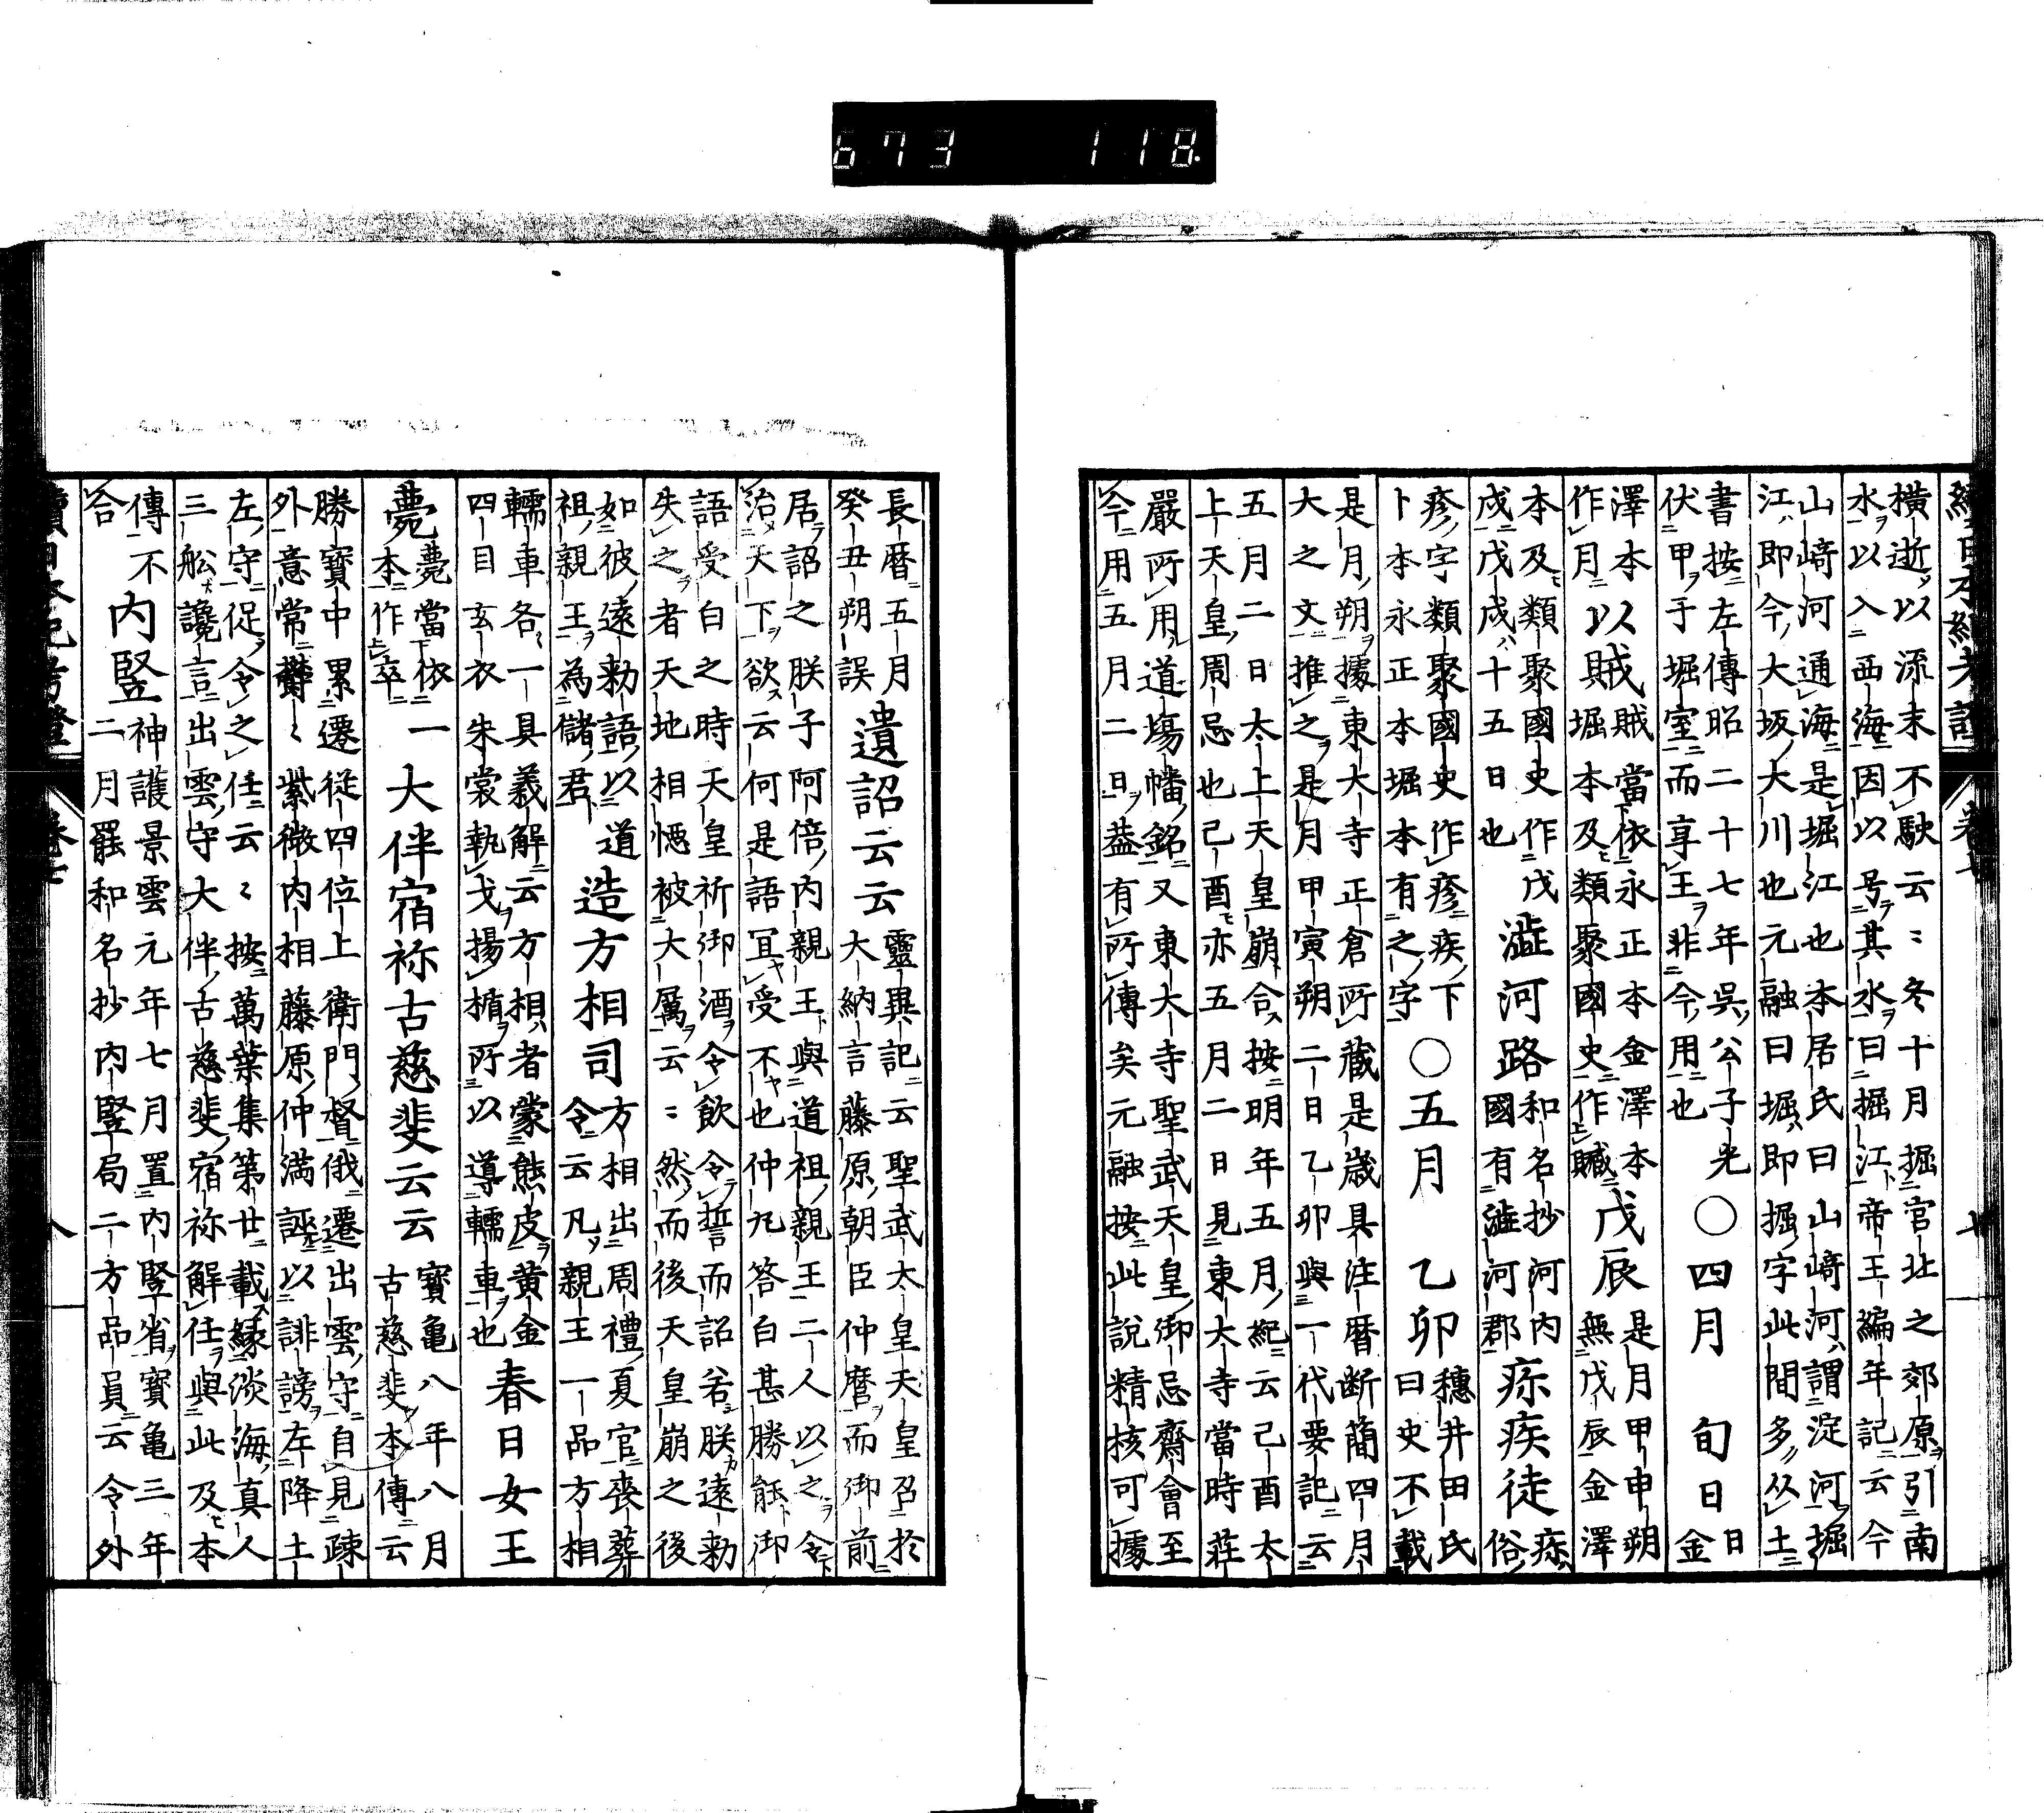 673 118
續日本紀考證 卷七 七
橫逝以流末不駛云〻冬十月掘官北之郊原引南
水以入西海因以号其水曰掘江帝王編年記云今
山﨑河通海是堀江也本居氏曰山﨑河謂淀河堀
江即今大坂大川也元融曰堀即掘字此間多从土
書按左傳昭二十七年吳公子光
伏甲于堀室而享王非今用也
○四月 旬日
日金
澤本
作月
以賊
賊當依永正本金澤本
堀本及類聚國史作贓
戊辰
是月甲申朔
無戊辰金澤
本及類聚國史作戊
戌戊戌十五日也
澁河路
和名抄河内
國有澁河郡
疹疾徒
疹俗
疹字類聚國史作疹疾下
卜本永正本堀本有之字
○五月 乙卯
穗井田氏
曰史不載
是月朔據東大寺正倉所藏是歲具注曆断簡四月
大之文推之是月甲寅朔二日乙卯與一代要記云
五月二日太上天皇崩合按明年五月紀云己酉太
上天皇周忌也己酉亦五月二日見東大寺當時莊
嚴所用道場幡銘又東大寺聖武天皇御忌齋會至
今用五月二日葢有所傳矣元融按此說精核可據
長曆五月
癸丑朔誤
遺詔云云
靈異記云聖武太皇天皇召於
大納言藤原朝臣仲麿而御前
居詔之朕子阿倍内親王與道祖親王二人以之令
治天下欲云何是語冝受不也仲丸答白甚勝能御
語受白之時天皇祈御酒令飲令誓而詔若朕遠勅
失之者天地相惡被大厲云〻然而後天皇崩之後
如彼遠勅語以道
祖親王為儲君
造方相司
方相出周禮夏官喪葬
令云凡親王一品方相
轜車各一具義解云方相者蒙熊皮黄金
四目玄衣朱裳執戈揚楯所以導轜車也
春日女王
薨
薨當依
本作卒
一大伴宿祢古慈斐云云
寶亀八年八月
古慈斐本傳云
勝寶中累遷従四位上衛門督俄遷出雲守自見疎
外意常欝〻紫微内相藤原仲満誣以誹謗左降土
左守促令之任云〻按萬葉集第廿載縁淡海真人
三舩讒言出雲守大伴古慈斐宿祢解任與此及本
傳不
合
内豎
神護景雲元年七月置内豎省寶亀三年
二月罷和名抄内豎局二方品員云令外
續日本紀考證 卷七 八